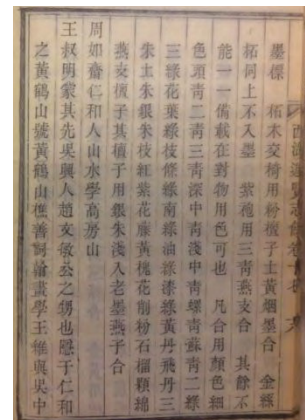 墨標　柘木交椅用粉檀子土黃烟墨合　金絲
柘同上不入墨　紫袍用三青燕支合　其餘不
能一一備載在對物用色可也　凡合用顏色細
色頭青二青三青深中青淺中青螺青蘇青二綠
三綠花葉綠枝條綠南綠油綠漆綠黃丹飛丹三
朱土朱銀朱枝紅紫花藤黃槐花削粉石榴顆綿
燕支檀子其檀子用銀朱淺入老墨燕子合
周如齋仁和人山水學高房山
王叔明蒙其先吳興人趙文敏公之甥也隱于仁和
之黃鶴山號黃鶴山樵善詞翰畫學王維與吳中